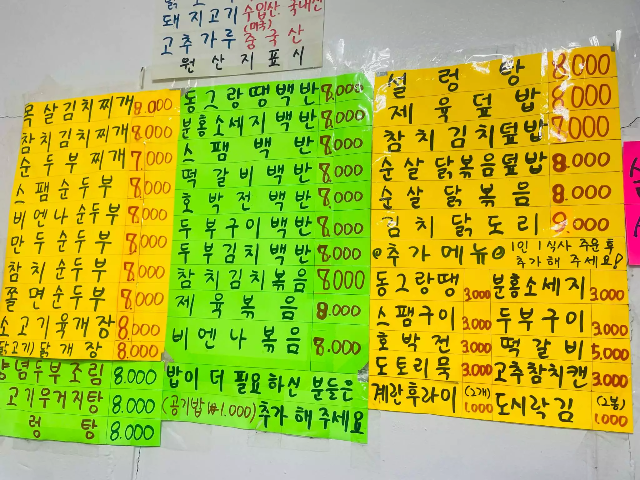 돼지고기 수입산 국내산
(미국)
고추가루 중국산
원산지표시
목살김치찌개 8.000
참치김치찌개 8.000
순두부찌개 7.000
스팸순두부 8.000
비엔나순두부 8.000
만두순두부 8.000
참치순두부 8.000
쫄면순두부 8.000
소고기육개장 8.000
닭고기닭개장 8.000
양념두부조림 8.000
고기우거지탕 8.000
렁탕 8.000
동그랑땡백반 8.000
분홍소세지백반 8.000
스팸백반 8.000
떡갈비백반 8.000
호박전백반 8.000
두부구이백반 8.000
두부김치백반 8.000
참치김치볶음 8000
제육볶음 8.000
비엔나볶음 8.000
밥이 더 필요하신 분들은
(공기밥 ₩1.000) 추가 해 주세요
설렁탕 8.000
제육덮밥 8.000
참치김치덮밥 7.000
순살닭볶음덮밥 8.000
순살닭볶음 8.000
김치닭도리 9.000
추가메뉴 1인 1식사 주문 후
추가 해 주세요!
동그랑땡 3.000 분홍소세지 3.000
스팸구이 3.000 두부구이 3.000
호박전 3.000 떡갈비 5.000
도토리묵 3.000 고추참치캔 3.000
계란후라이 (2개) 1.000 도시락김 (2봉) 1.000